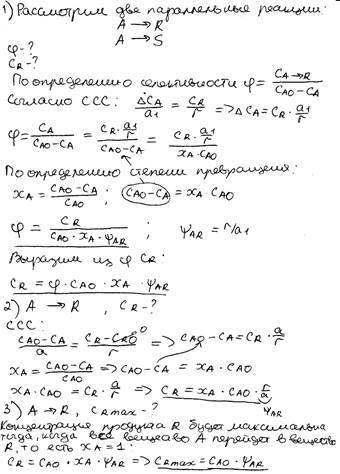 1) Рассмотрим две параллельные реакции:
A → R
A → S
φ-?
CR-?
По определению селективности φ = CA→R / (CAO-CA)
Согласно ССС: ΔCA/a1 = CR/r => ΔCA = CR · a1/r
φ = CA/(CAO-CA) = (CR · a1/r)/(CAO-CA) = (CR · a1/r)/(xA · CAO)
По определению степени превращения:
xA = (CAO-CA)/CAO ; CAO-CA = xA · CAO
φ = CR/(CAO · xA · ψAR) ; ψAR = r/a1
Выразим из φ CR:
CR = φ · CAO · xA · ψAR
2) A → R , CR-?
ССС:
(CAO-CA)/a = (CR-CRO)/r => CAO-CA = CR · a/r
xA = (CAO-CA)/CAO => CAO-CA = xA · CAO
xA · CAO = CR · a/r => CR = xA · CAO · r/a
ψAR
3) A → R, CRmax-?
Концентрация продукта R будет максимальна
тогда, когда всё вещество A перейдет в вещество
R, то есть xA = 1:
CR = CAO · xA · ψAR => CRmax = CAO · ψAR